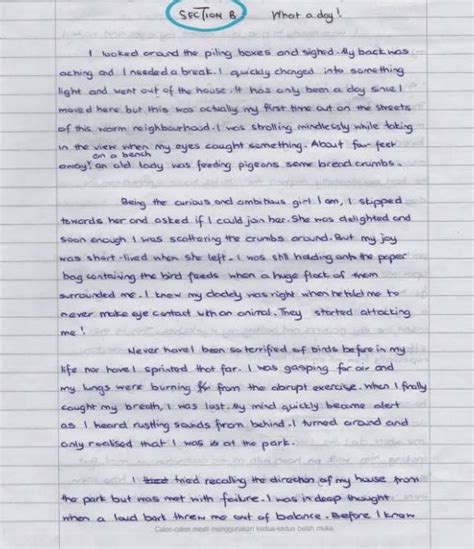 SECTION B What a day!
I looked around the piling boxes and sighed. My back was
aching and I needed a break. I quickly changed into something
light and went out of the house. It has only been a day since I
moved here but this was actually my first time out on the streets
of this warm neighbourhood. I was strolling mindlessly while taking
in the view when my eyes caught something. About four feet
on a bench
away, an old lady was feeding pigeons some bread crumbs.
Being the curious and ambitious girl I am, I skipped
towards her and asked if I could join her. She was delighted and
soon enough I was scattering the crumbs around. But my joy
was short-lived when she left. I was still holding onto the paper
bag containing the bird feeds when a huge flock of them
surrounded me. I knew my daddy was right when he told me to
never make eye contact with an animal. They started attacking
me!
Never have I been so terrified of birds before in my
life nor have I sprinted that far. I was gasping for air and
my lungs were burning from the abrupt exercise. When I finally
caught my breath, I was lost. My mind quickly became alert
as I heard rustling sounds from behind. I turned around and
only realised that I was at the park.
I tried recalling the direction of my house from
the park but was met with failure. I was in deep thought
when a loud bark threw me out of balance. Before I knew
Calon-calon mesti menggunakan kedua-kedua belah muka.